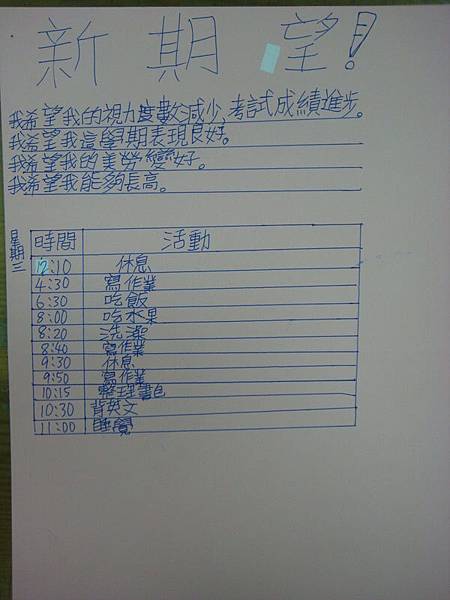 新期望!
我希望我的視力度數減少,考試成績進步。
我希望我這學期表現良好。
我希望我的美勞變好。
我希望我能夠長高。
星期三
時間 活動
12:10 休息
4:30 寫作業
6:30 吃飯
8:00 吃水果
8:20 洗澡
8:40 寫作業
9:30 休息
9:50 寫作業
10:15 整理書包
10:30 背英文
11:00 睡覺